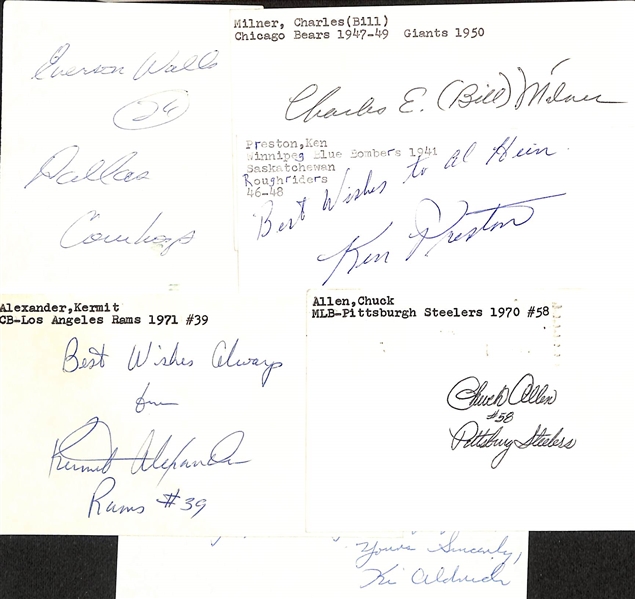 Everson Walls
24
Dallas
Cowboys
Milner, Charles(Bill)
Chicago Bears 1947-49 Giants 1950
Charles E. (Bill) Milner
Preston,Ken
Winnipeg Blue Bombers 1941
Saskatchewan
Roughriders
46-48
Best Wishes to Al Hein
Ken Preston
Alexander,Kermit
CB-Los Angeles Rams 1971 #39
Best Wishes Always
from
Kermit Alexander
Rams #39
Allen,Chuck
MLB-Pittsburgh Steelers 1970 #58
Chuck Allen
#58
Pittsburg Steelers
Yours Sincerely,
Ki Aldrich